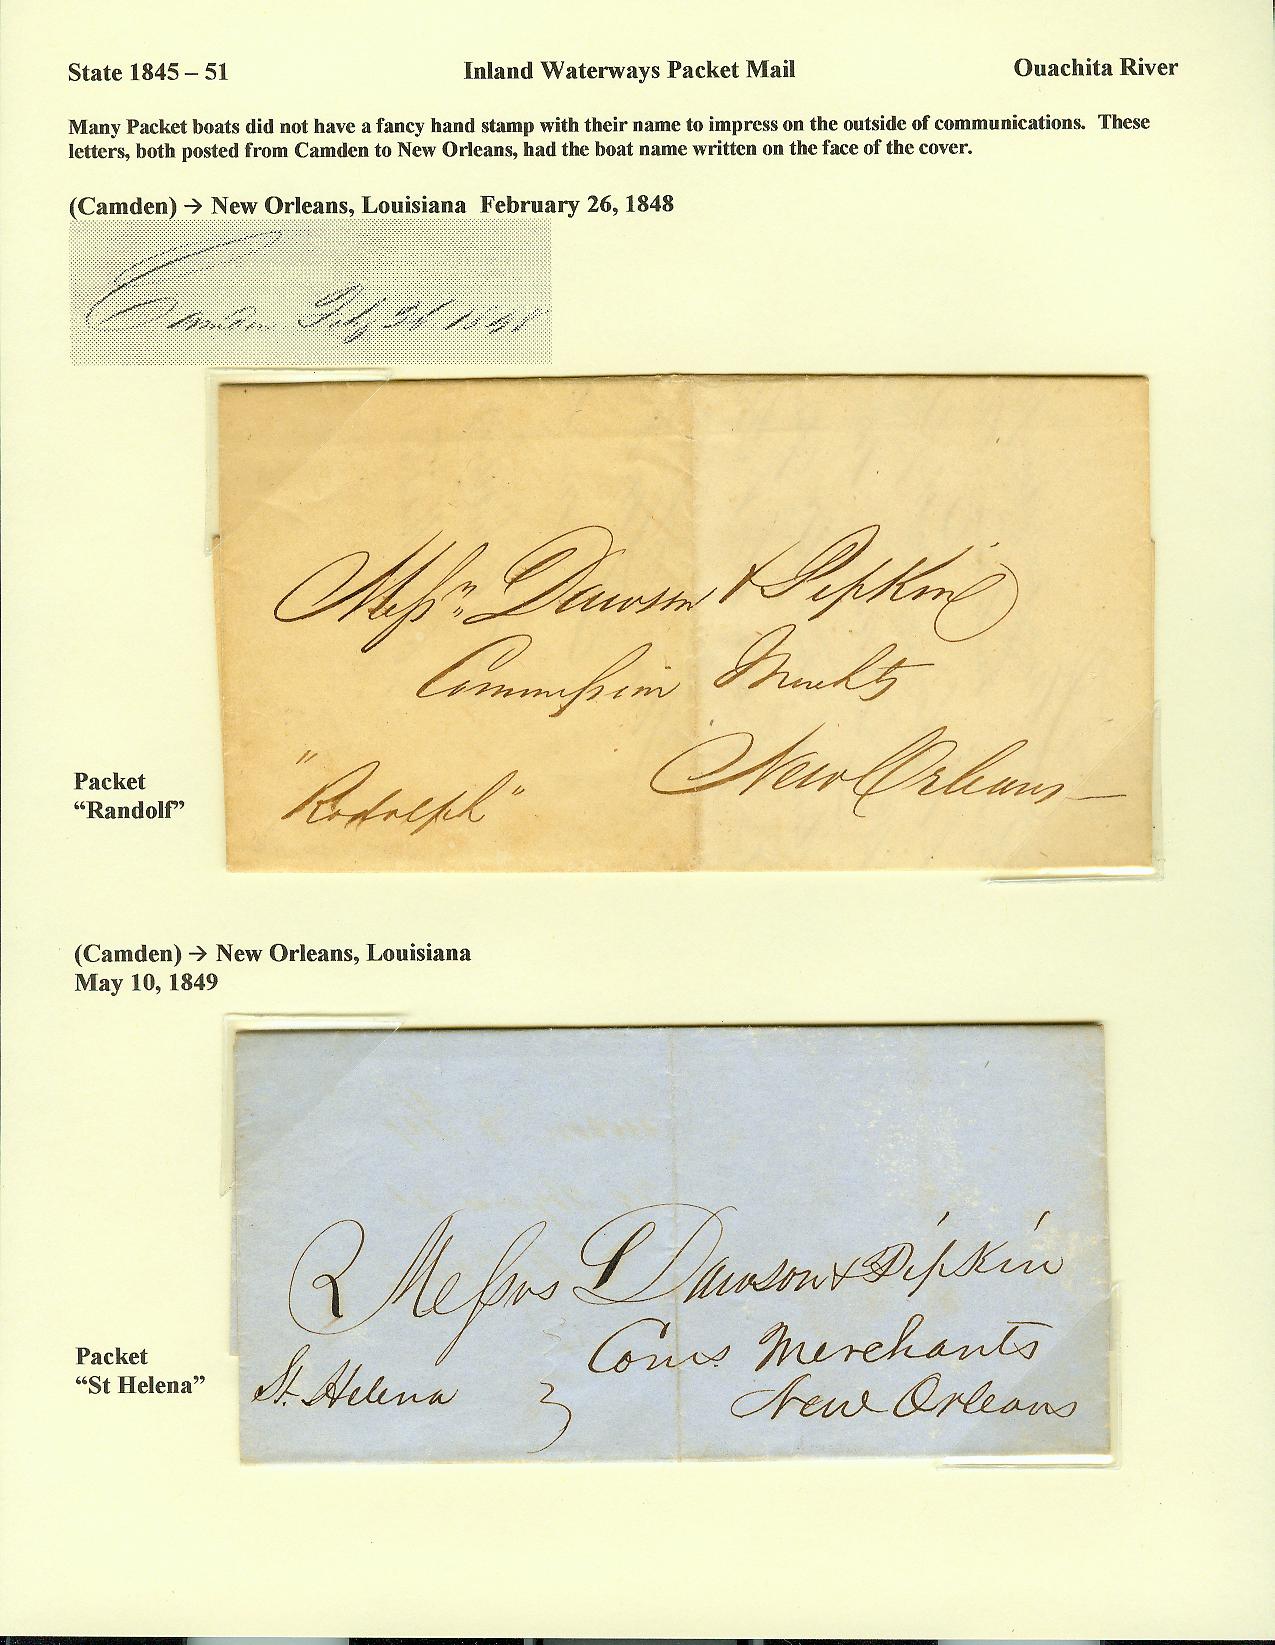 State 1845 – 51 Inland Waterways Packet Mail Ouachita River
Many Packet boats did not have a fancy hand stamp with their name to impress on the outside of communications. These
letters, both posted from Camden to New Orleans, had the boat name written on the face of the cover.
(Camden) → New Orleans, Louisiana February 26, 1848
Camden Feby 26 1848
Messrs Dawson & Pipkin
Commission Merchts
New Orleans —
"Rodolph"
Packet
“Randolf”
(Camden) → New Orleans, Louisiana
May 10, 1849
Messrs Dawson & Pipkin
Coms. Merchants
New Orleans
St. Helena
Packet
“St Helena”